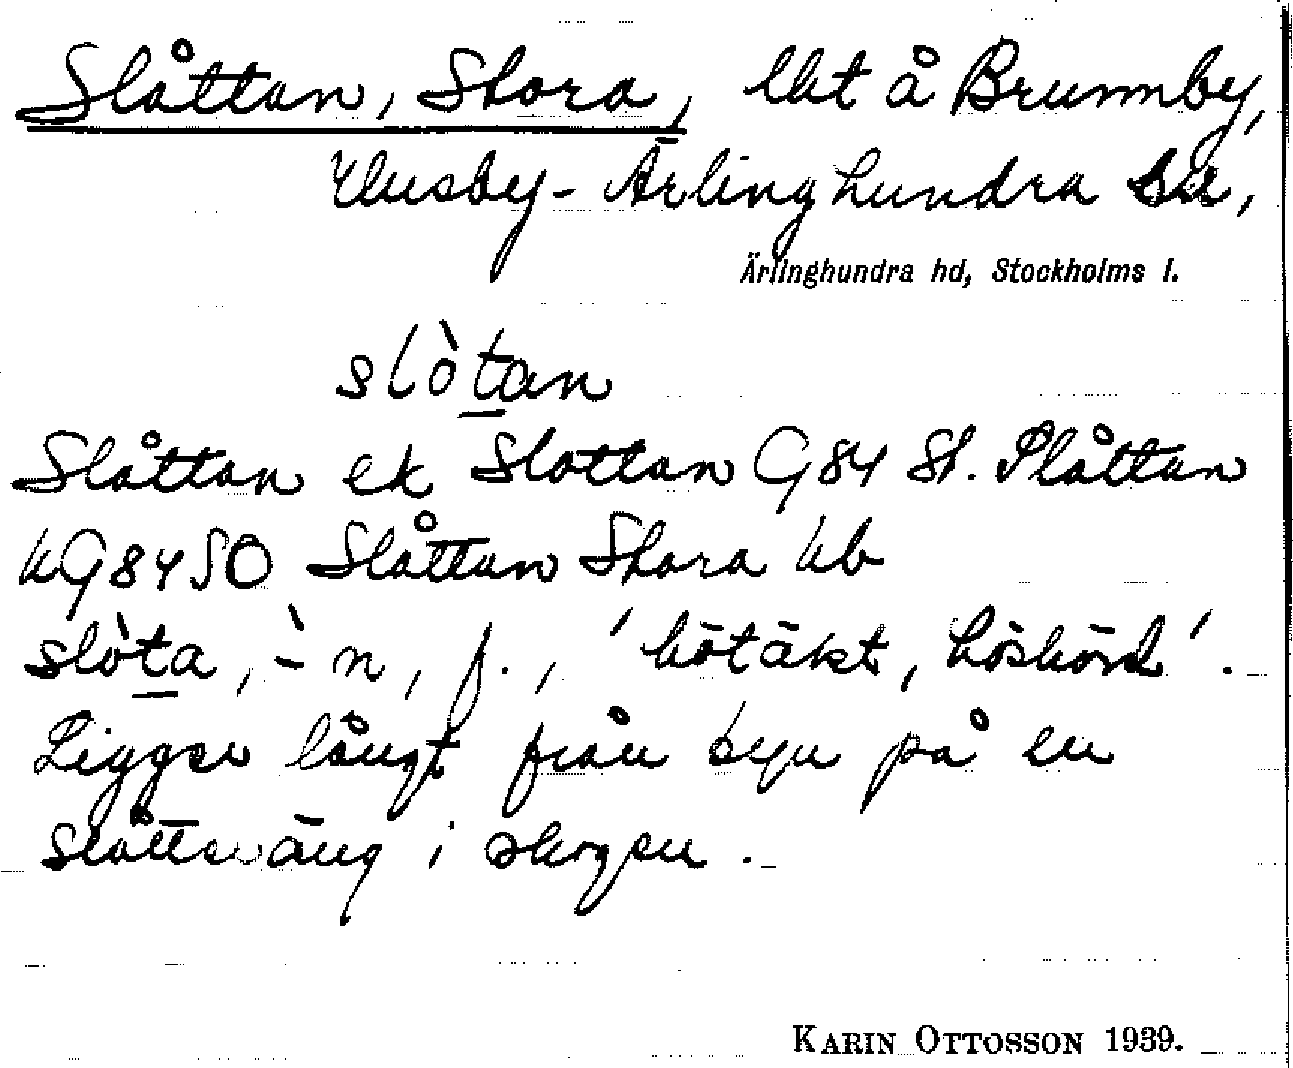 Slåttan, Stora, lht å Brunnby,
Husby-Ärlinghundra sn,
Ärlinghundra hd, Stockholms l.
slò̀tan
Slåttan ek Slottan G84 St. Slåttan
kG84SO Slåttan Stora kb
slòta, -̀n, f., 'hötäkt, höskörd'.
Ligger långt från byn på en
slåttesväng i skogen.
KARIN OTTOSSON 1939.